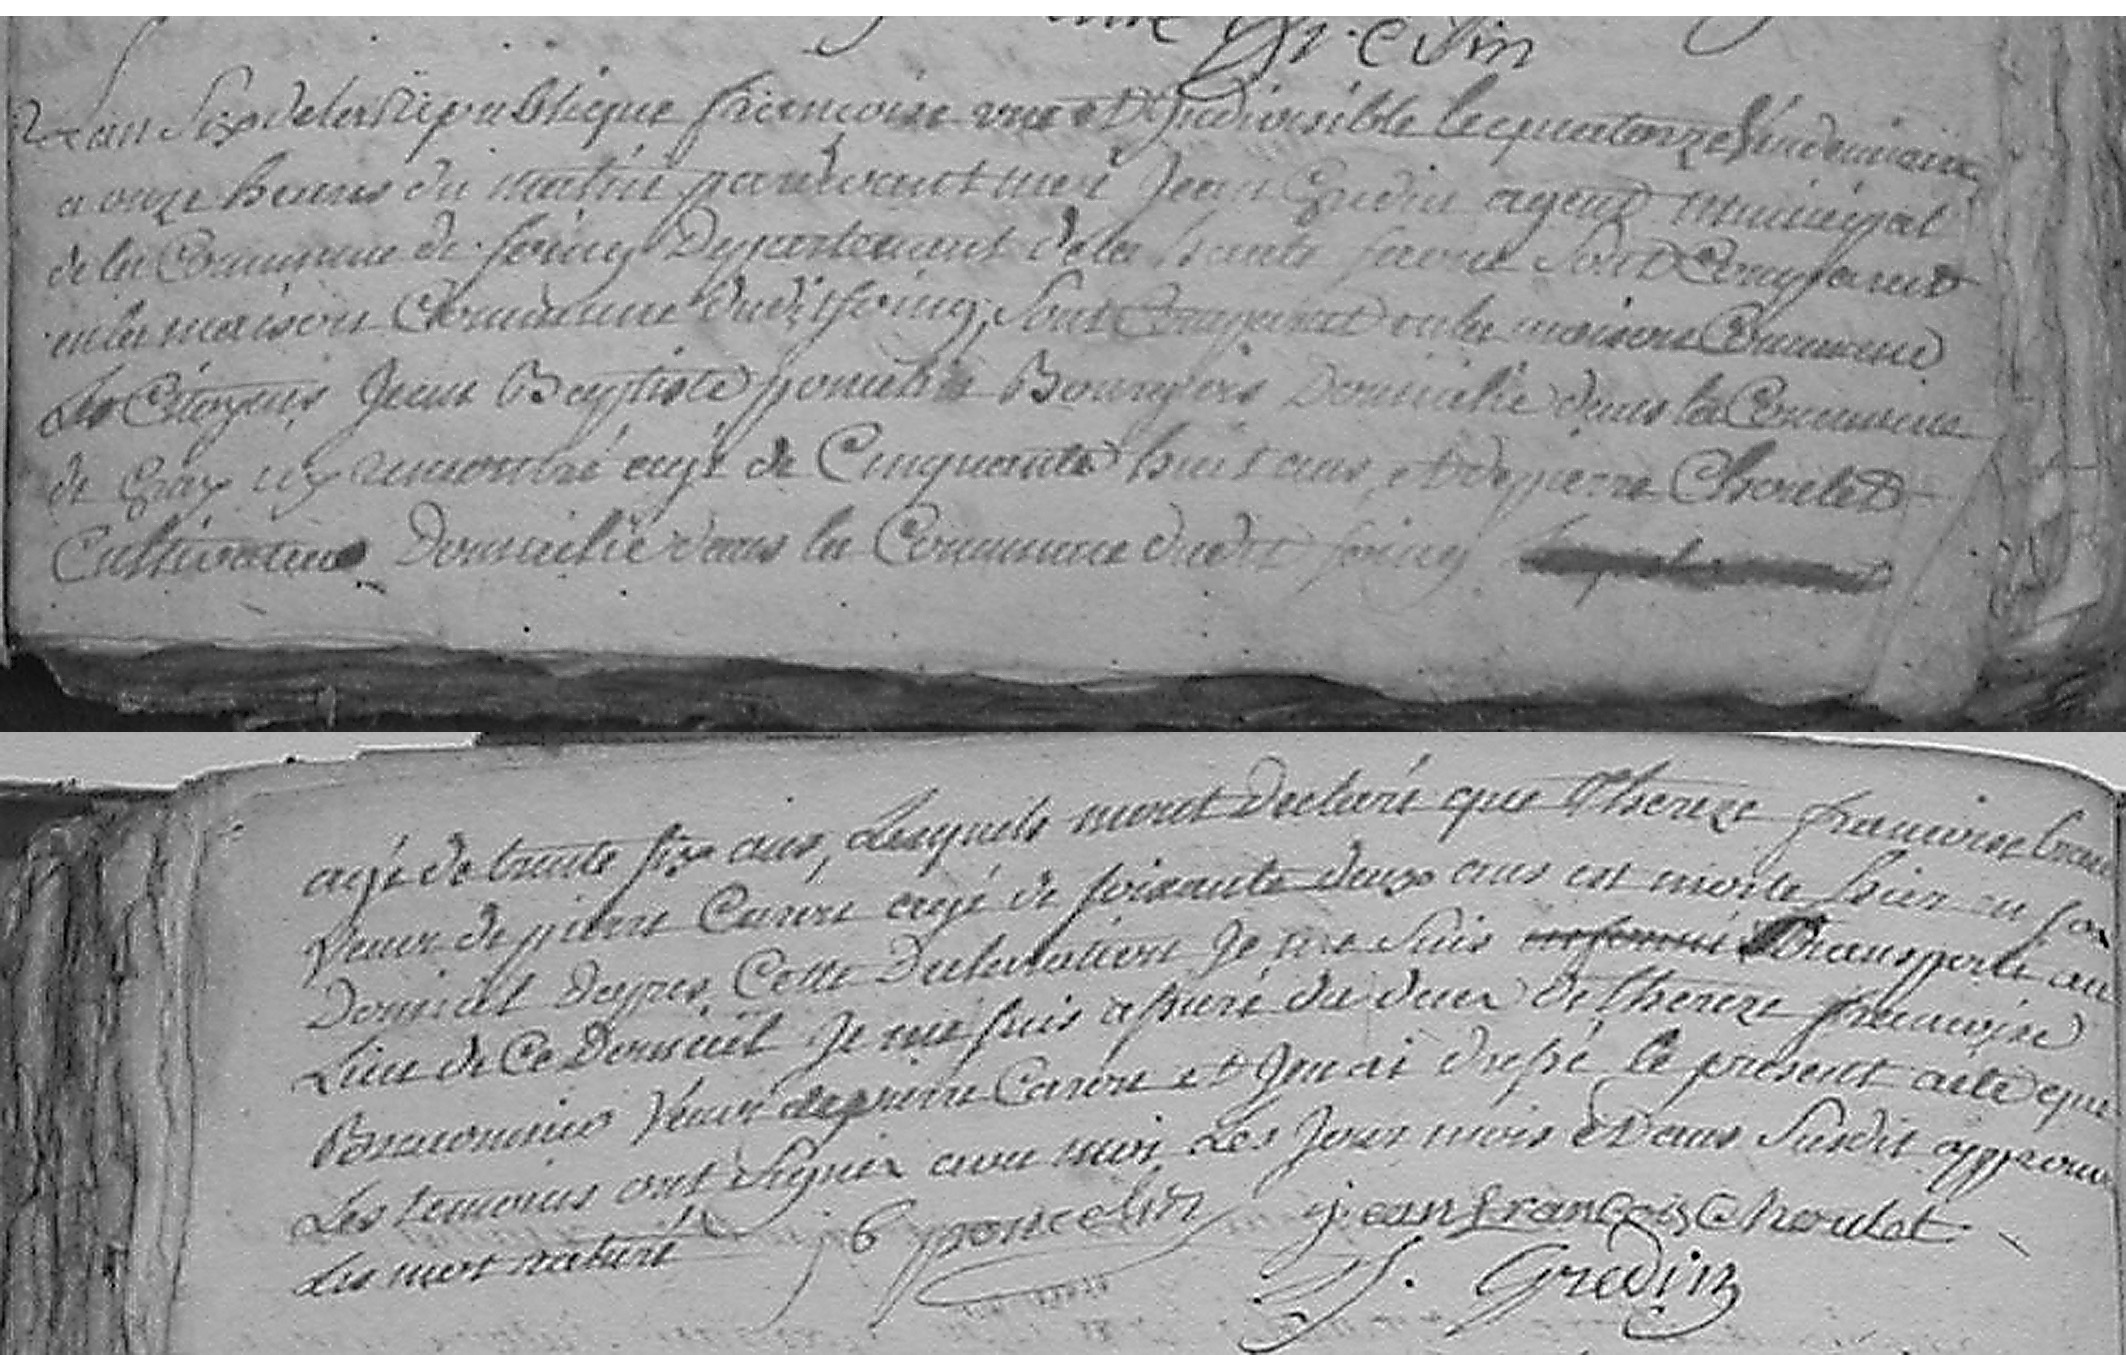 Gredin
Lan Six de la Republique francoise une et Indivisible le quatorze Vendemiaire
a onze heures du matin pardevant moi Jean Gredin agent municipal
de la Commune de foing Departement de la haute saone sont Comparut
en la maison Commune dudit foing, sont Comparut en la maison Commune
Les Citoyens Jean Baptiste poncelin Bourgeois Domicilié dans la Commune
de Gray agé de Cinquante huit ans, et de pierre Choulet
Cultivateur Domicilié dans la Commune dudit foing
agé de trente six ans, Lesquels mont Declaré que therreze francoise
veuve de pierre Caron agé de soixante deux ans est morte hier en son
Domicil depres Cette Declaration Je me suis Transporté au
Lieu de Ce Domicil Je me suis assuré du deces de thereze francoise
veuve de pierre Caron et Jen ai dressé le present acte que
Les temoins ont Signer avec moi Les Jour mois et ans Susdit approuve
Les mot raturé J B poncelin jean francois Choulet
J. Gredin